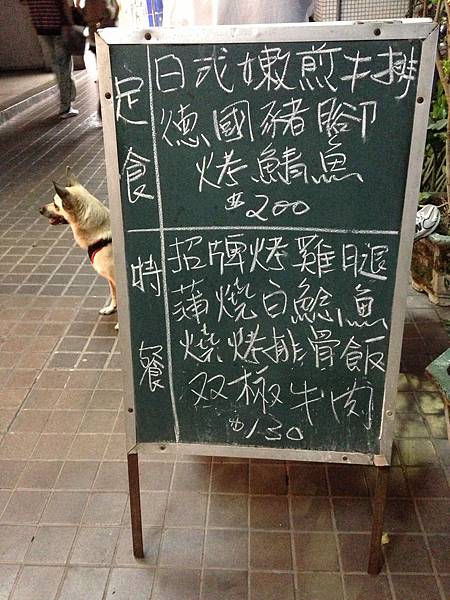 定食
日式嫩煎牛排
德國豬腳
烤鯖魚
$200
特餐
招牌烤雞腿
蒲燒白鯰魚
燒烤排骨飯
双椒牛肉
$130